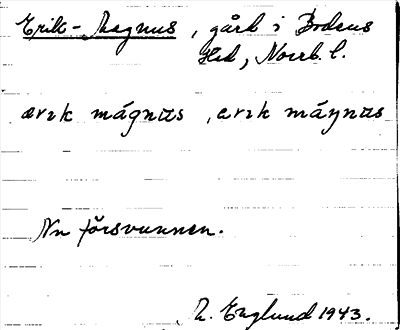 Erik-Magnus, gård i Bodens
Hed, Norrb. l.
ærɪk mágnɯs, ærɪk máŋnɯs
Nu försvunnen.
R. Englund 1943.